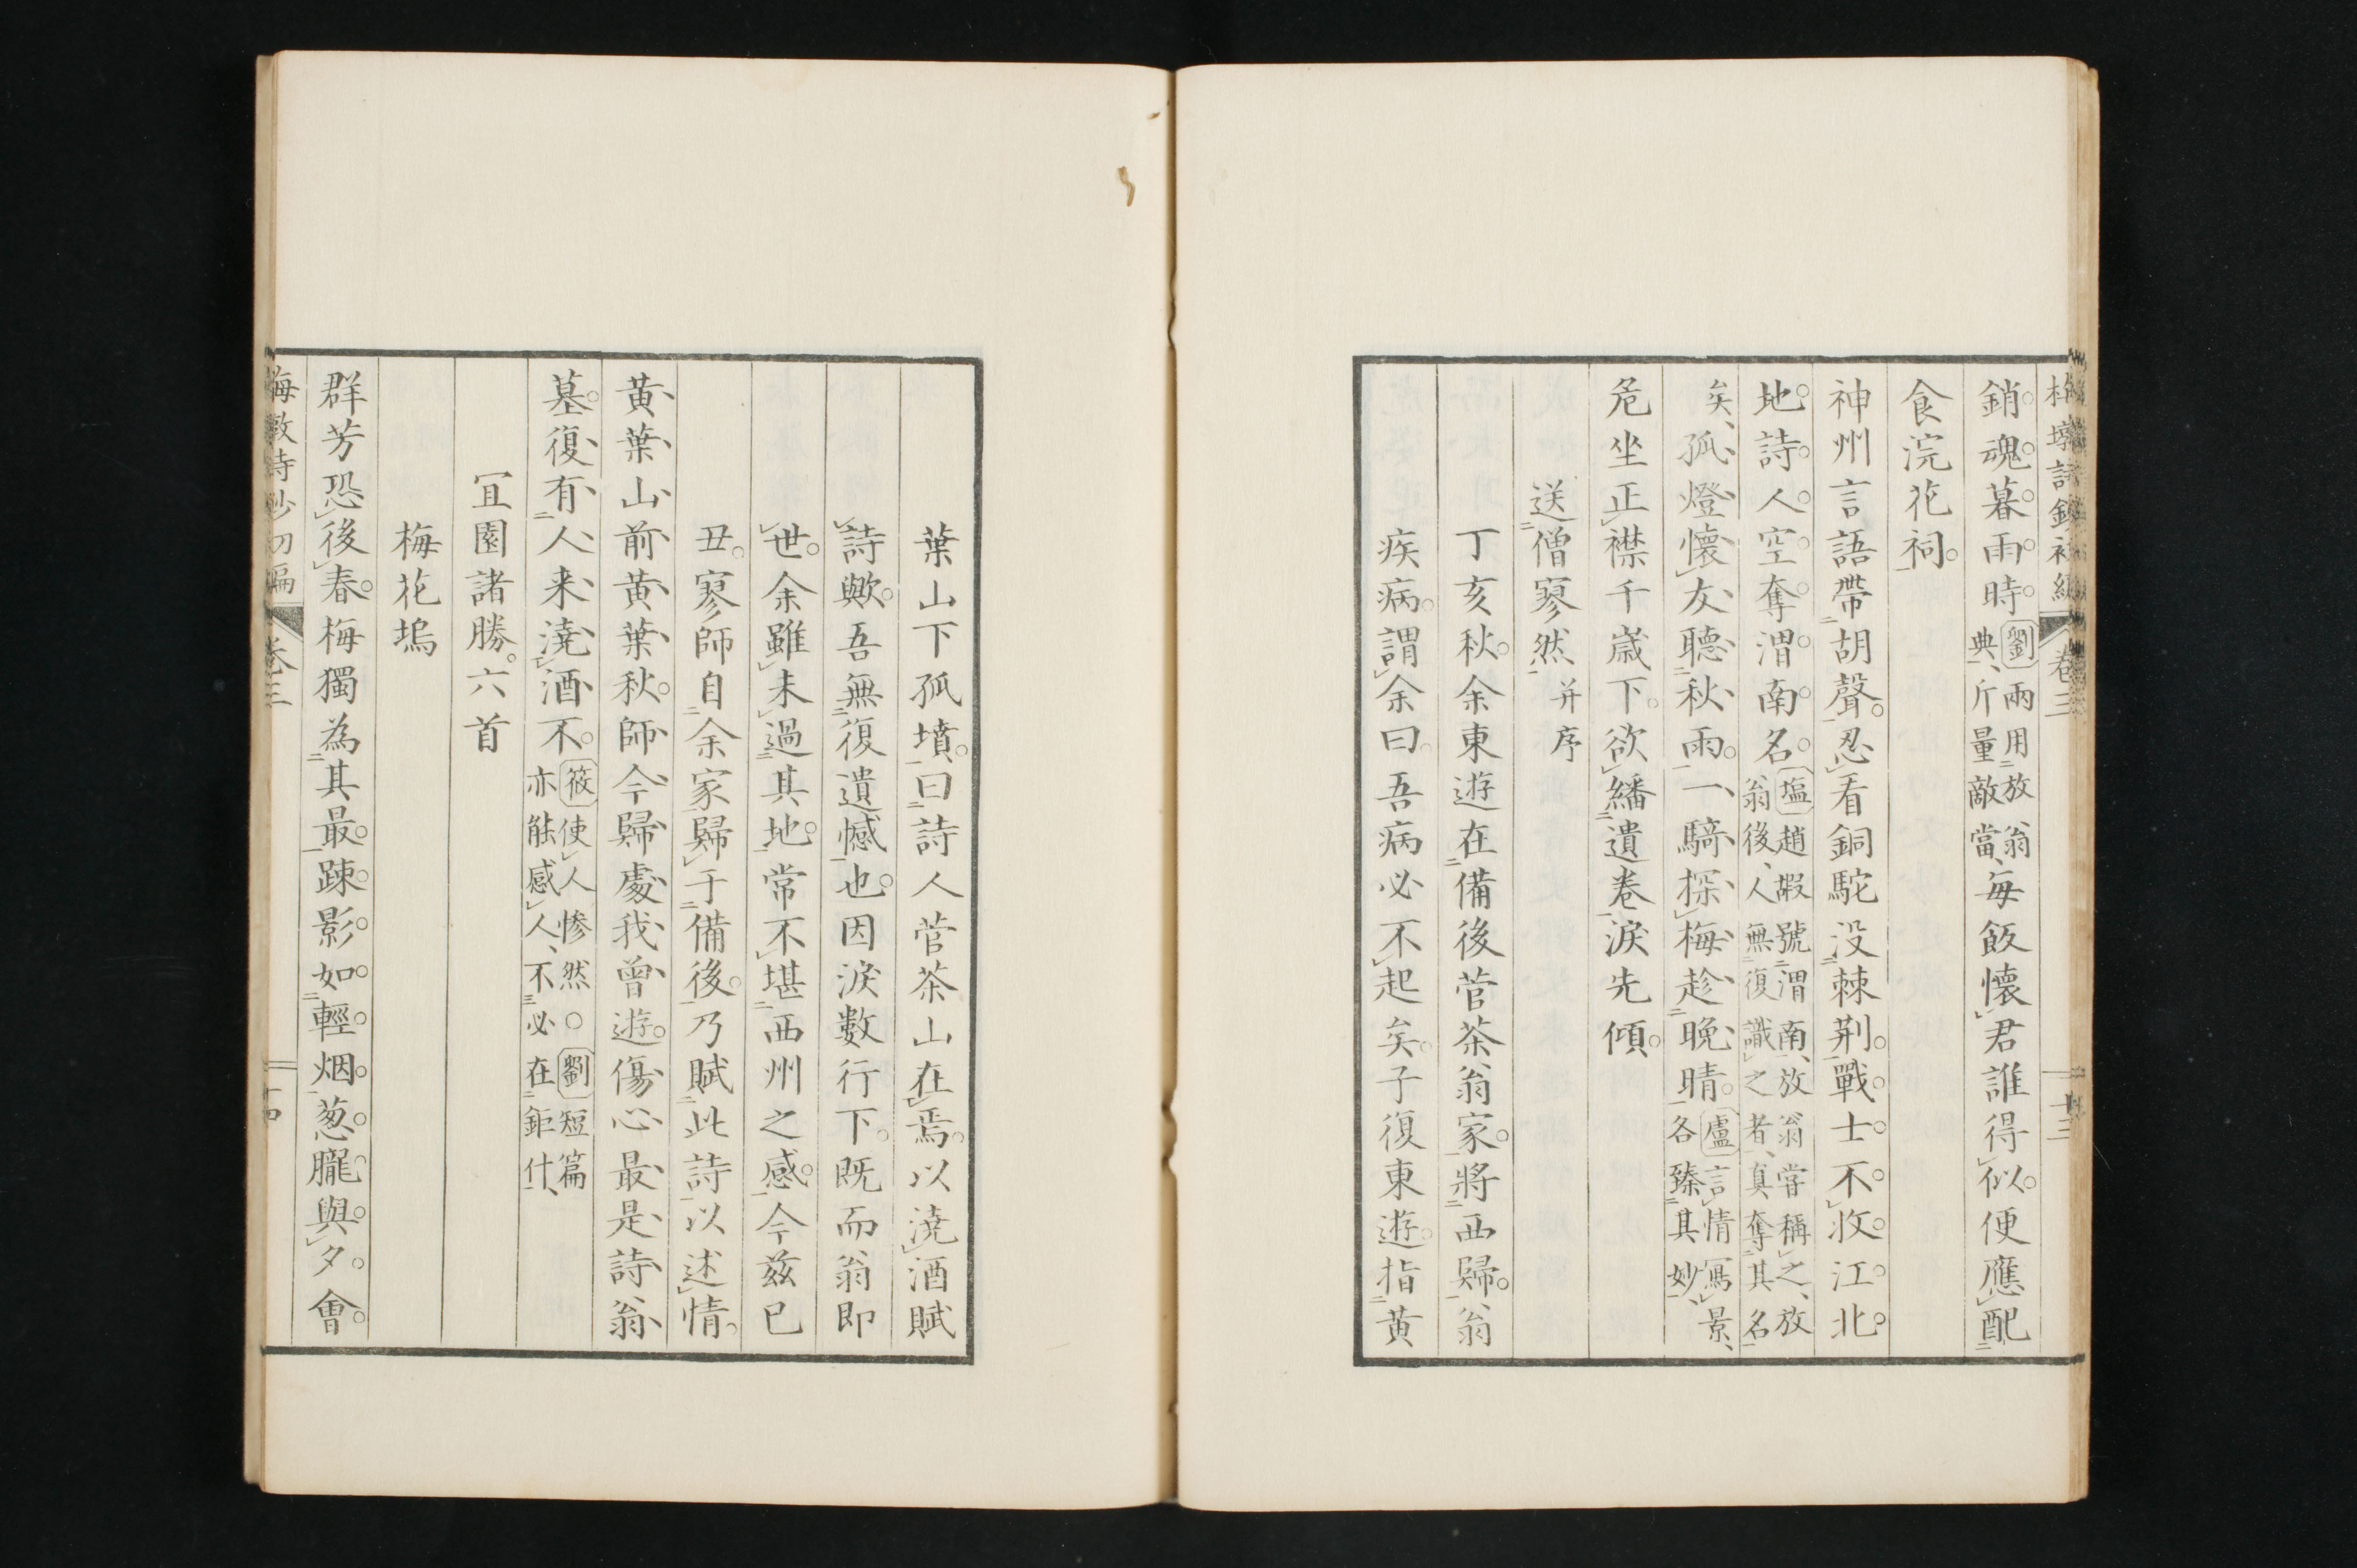 銷魂暮雨時劉兩用放翁典斤量敵當每飯懷君誰得似便應配
食浣花祠
神州言語帶胡聲忍看銅駝没棘荆戰士不收江北
地詩人空奪渭南名塩趙嘏號渭南放翁嘗稱之放翁後人無復識之者真奪其名
矣孤燈懷友聽秋雨一騎探梅趁晩晴盧言情寫景各臻其妙
危坐正襟千歳下欲繙遺卷淚先傾
送僧寥然并序
丁亥秋余東遊在備後菅茶翁家將西歸翁
疾病謂余曰吾病必不起矣子復東遊指黄
葉山下孤墳曰詩人菅茶山在焉以澆酒賦
詩歟吾無復遺憾也因淚數行下既而翁即
世余雖未過其地常不堪西州之感今兹已
丑寥師自余家歸于備後乃賦此詩以述情
黄葉山前黄葉秋師今歸處我曾遊傷心最是詩翁
墓復有人来澆酒不筱使人惨然○劉短篇亦能感人不必在鉅什
冝園諸勝六首
梅花塢
群芳恐後春梅獨為其最踈影如輕烟葱朧與夕會
卷三